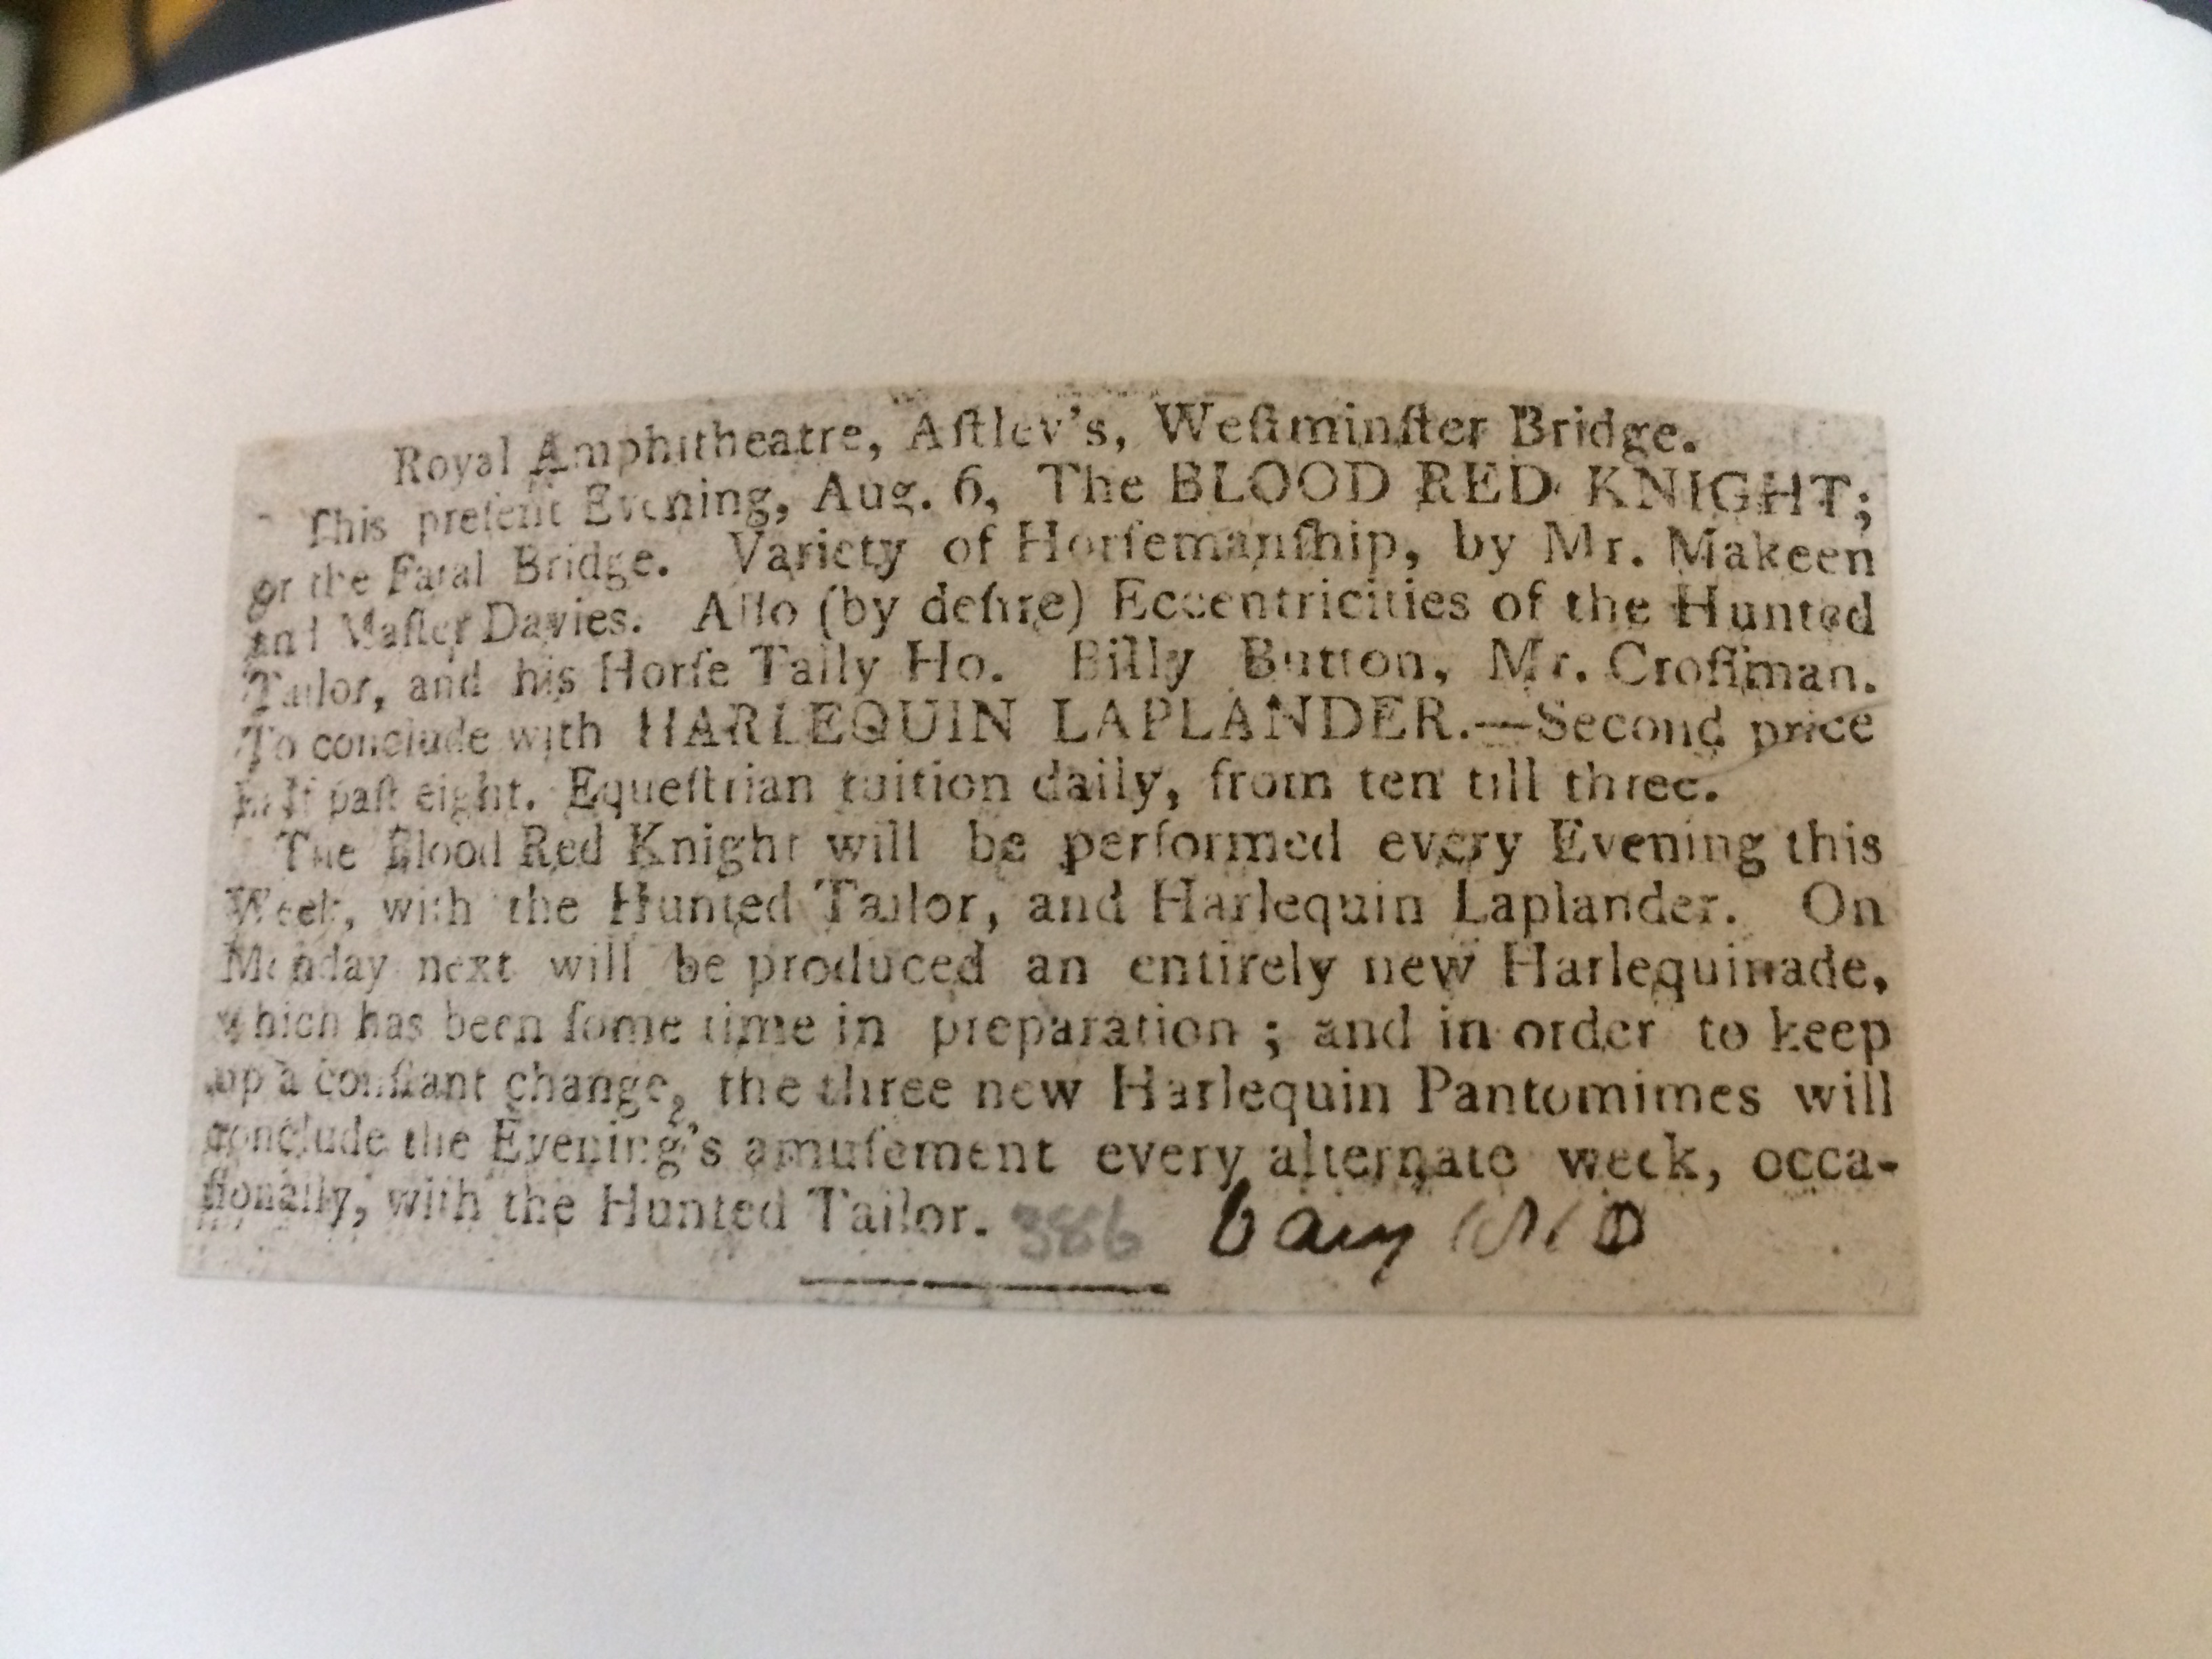 Royal Amphitheatre, Aſtley's, Weſtminſter Bridge.
This preſent Evening, Aug. 6, The BLOOD RED KNIGHT;
or the Fatal Bridge. Variety of Horſemanſhip, by Mr. Makeen
and Maſter Davies. Alſo (by deſire) Eccentricities of the Hunted
Tailor, and his Horſe Tally Ho. Billy Button, Mr. Croſſman.
To conclude with HARLEQUIN LAPLANDER.—Second price
half paſt eight. Equeſtrian tuition daily, from ten till three.
The Blood Red Knight will be performed every Evening this
Week, with the Hunted Tailor, and Harlequin Laplander. On
Monday next will be produced an entirely new Harlequinade,
which has been ſome time in preparation ; and in order to keep
up a conſtant change, the three new Harlequin Pantomimes will
conclude the Evening's amuſement every alternate week, occa-
ſionally, with the Hunted Tailor. 386